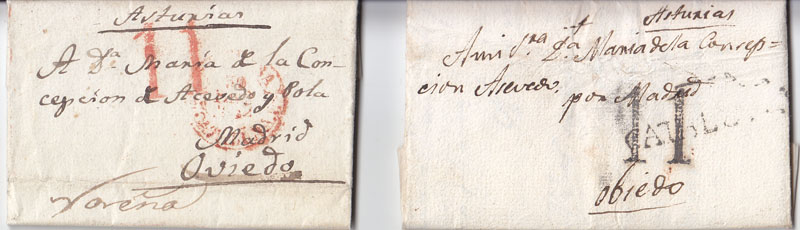 Asturias
A Dª María d la Con-
cepcion d Acevedo y Pola
Madrid
Oviedo
Noreña
11
Asturias
A mi Sra Dª Maria de la Concep=
cion Acevedo
por Madrid
11
Obiedo